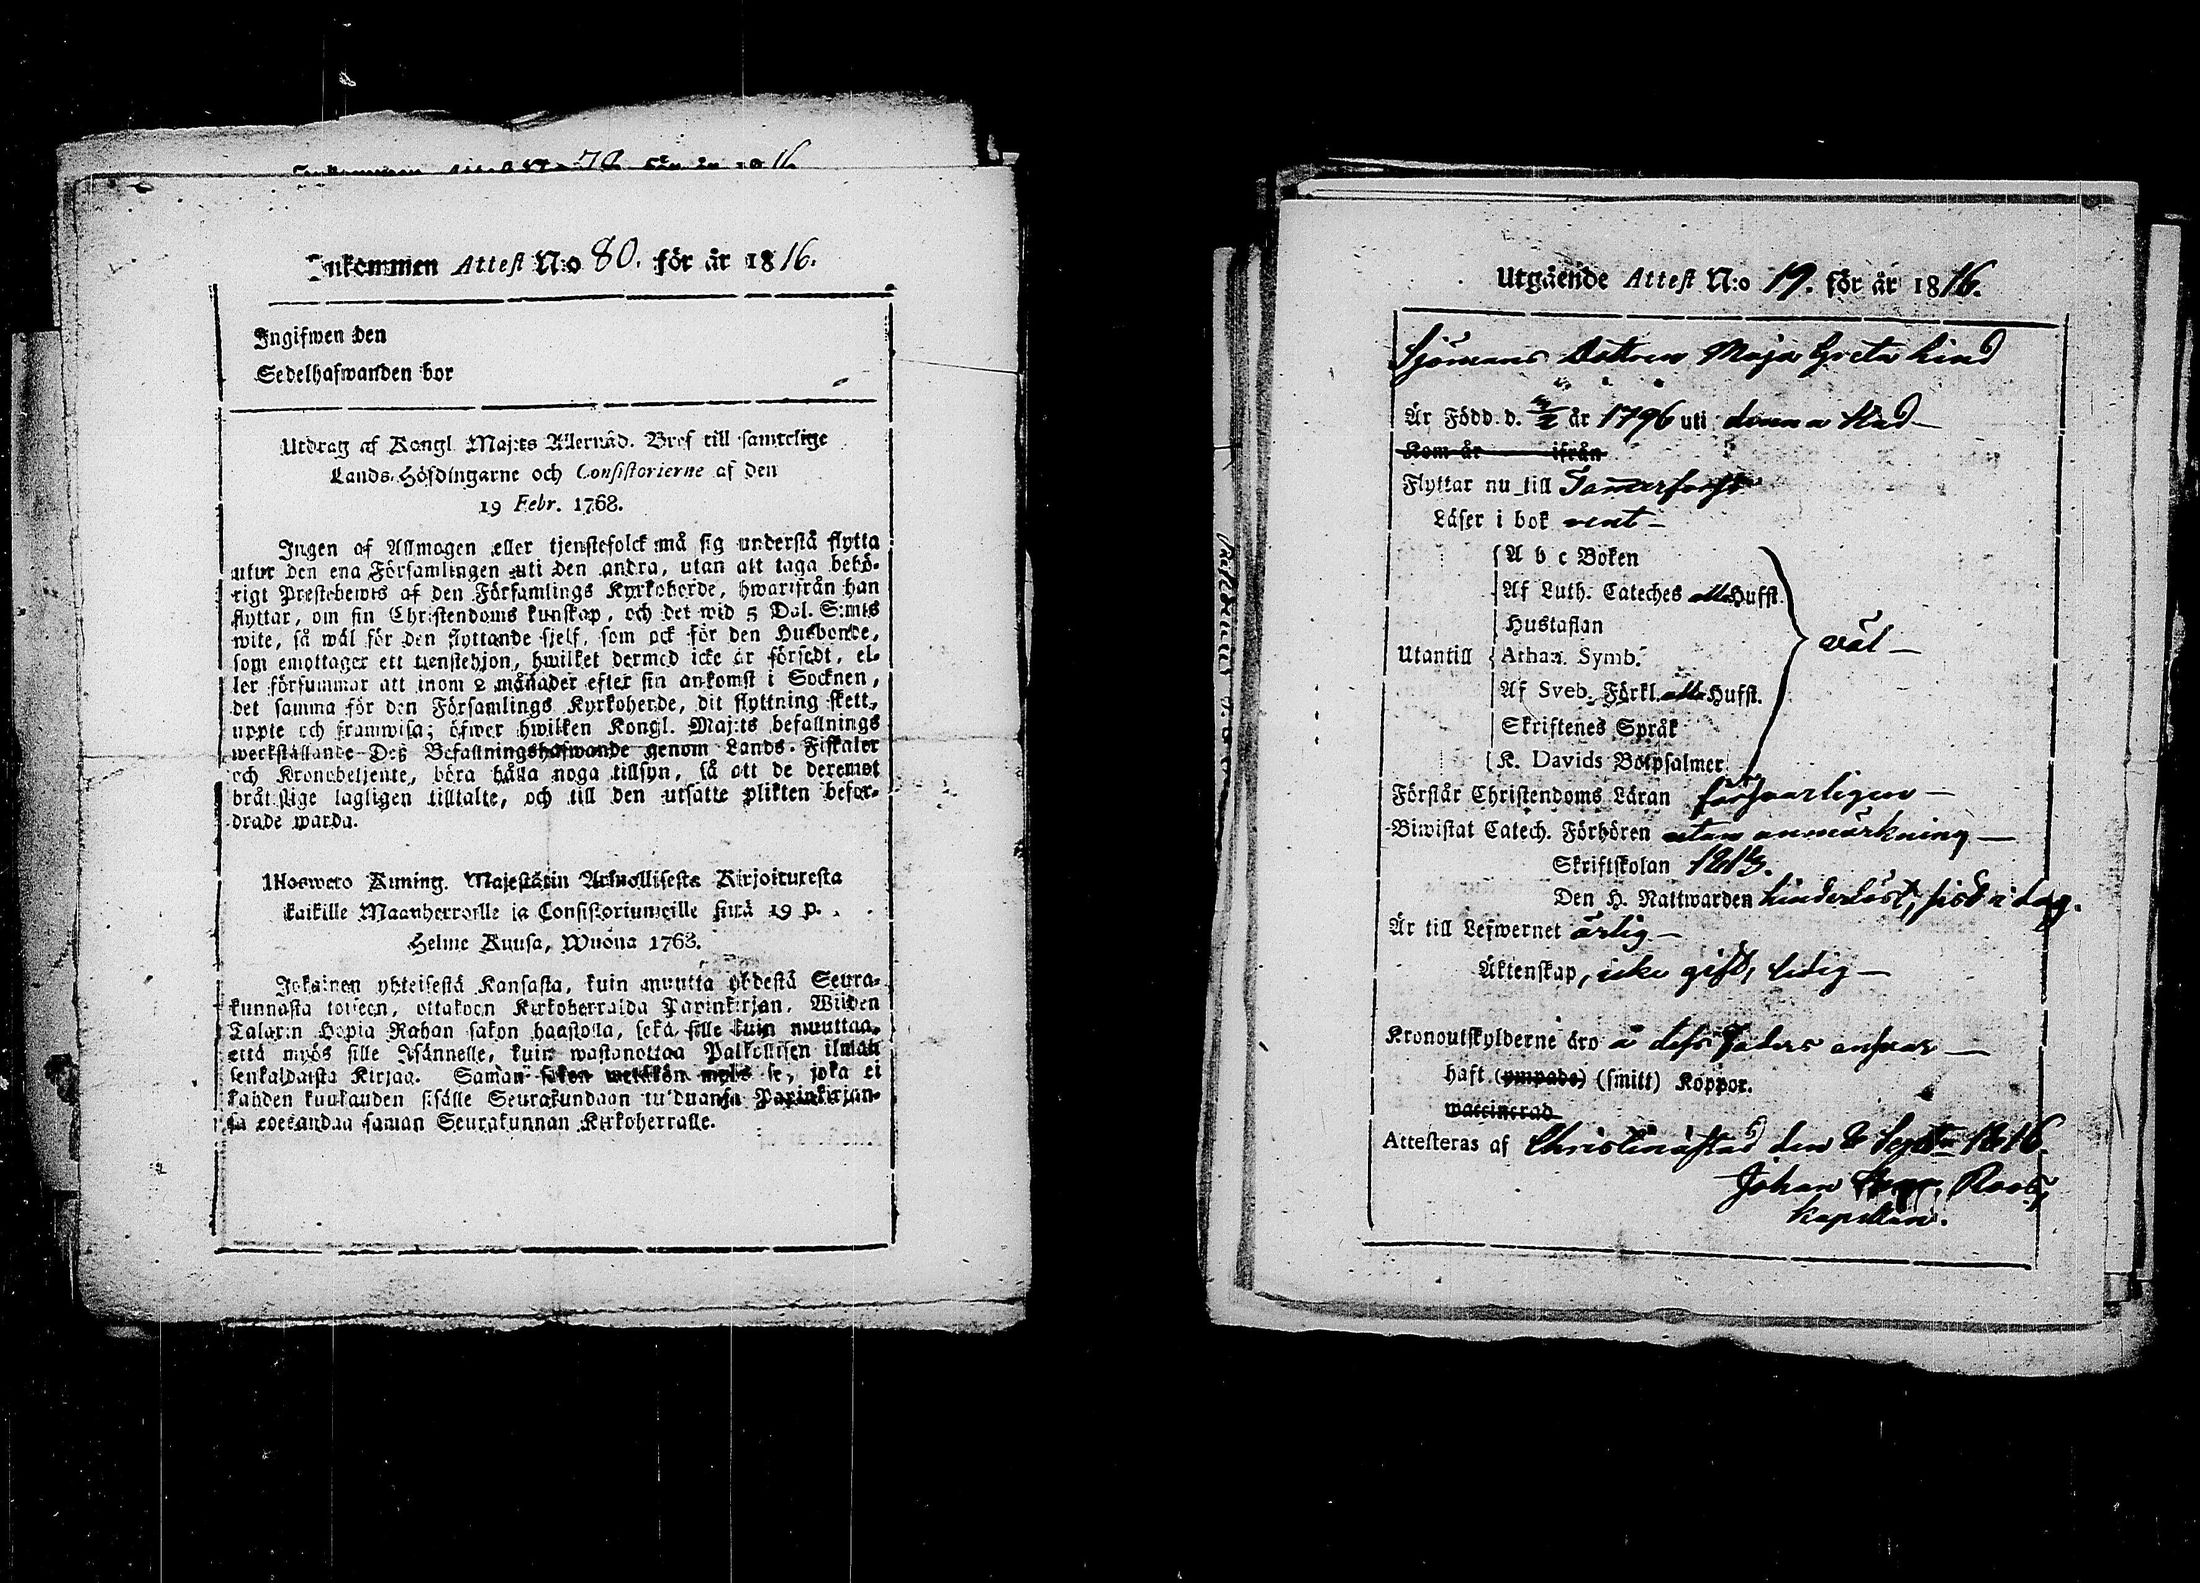 Inkommen Attest N:o 80. för år 1816.
Ingifwen den
Sedelhafwanden bor
Utdrag af Kongl Maj:ts Allernåd. Bref till samtelige
Lands-Höfdingarne och Consistorierne af den
19 Febr. 1768.
Ingen af Allmogen eller tjenstefolck må sig understå flytta
utur den ena Församlingen uti den andra, utan att taga behö-
rigt Prestebewis af den Församlings Kyrkoherde, hwarifrån han
flyttar, om sin Christendoms kunskap, och det wid 5 Dal. S:mts
wite, så wäl för den flyttande sjelf, som ock för den Husbonde,
som emottager ett tjenstehjon, hwilket dermed icke är försedt, el-
ler försummar att inom 2 månader efter sin ankomst i Socknen,
det samma för den Församlings Kyrkoherde, dit flyttning skett,
uppte och framwisa; öfwer hwilken Kongl. Maj:ts befallnings
werkställande Deß Befallningshafwande genom Lands-Fiskaler
och Kronobetjente, böra hålla noga tillsyn, så att de deremot
bråtslige lagligen tilltalte, och till den utsatte plikten befor-
drade warda.
Uloswето Kuning. Majestätin Armollisesta Kirjoituresta
kaikille Maanherroille ja Consistoriumeille siitä 19 p.
Helme Kuusa, Wuona 1768.
Jokainen yhteisestä Kansasta, kuin muutta yhdestä Seura-
kunnasta toiseen, ottakoon Kirkoherralda Papinkirjan, Wiiden
Talarin Hopia Rahan sakon haastolla, sekä sille kuin muuttaa,
että myös sille Isännelle, kuin wastanottaa Palkollisen ilman
senkaldaista Kirjaa. Saman sakon wetäkön myös se, joka ei
kahden kuukauden sisälle Seurakundaan tulduansa Papinkirjan-
sa edesandaa saman Seurakunnan Kirkoherralle.
Utgående Attest N:o 19. för år 1816.
Sjömans Dottren Maja Greta Lind
Är Född d. år 1796 uti denna Stad
Kom år ifrån
Flyttar nu till Tamerfors
Läser i bok rent
A b c Boken
Af Luth. Cateches alla Hufst.
Hustaflan
Utantill Athan. Symb. väl
Af Sveb. Förkl. alla Hufst.
Skriftenes Språk
K. Davids Botpsalmer
Förstår Christendoms Läran försvarligen
Biwistat Catech. Förhören utan anmärkning
Skriftskolan 1813.
Den H. Nattwarden hinderlöst, sist i dag.
Är till Lefwernet ärlig
Äktenskap, icke gift, ledig
Kronoutskylderne äro å dess Faders ansvar
haft (ympade) (smitt) Koppor.
waccinerad
Attesteras af Christinæstad den 2 Septr 1816.
Johan
Kapellan.